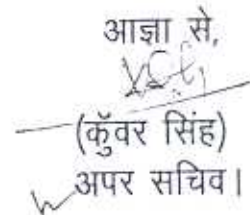 आज्ञा से,
(कुँवर सिंह)
अपर सचिव।